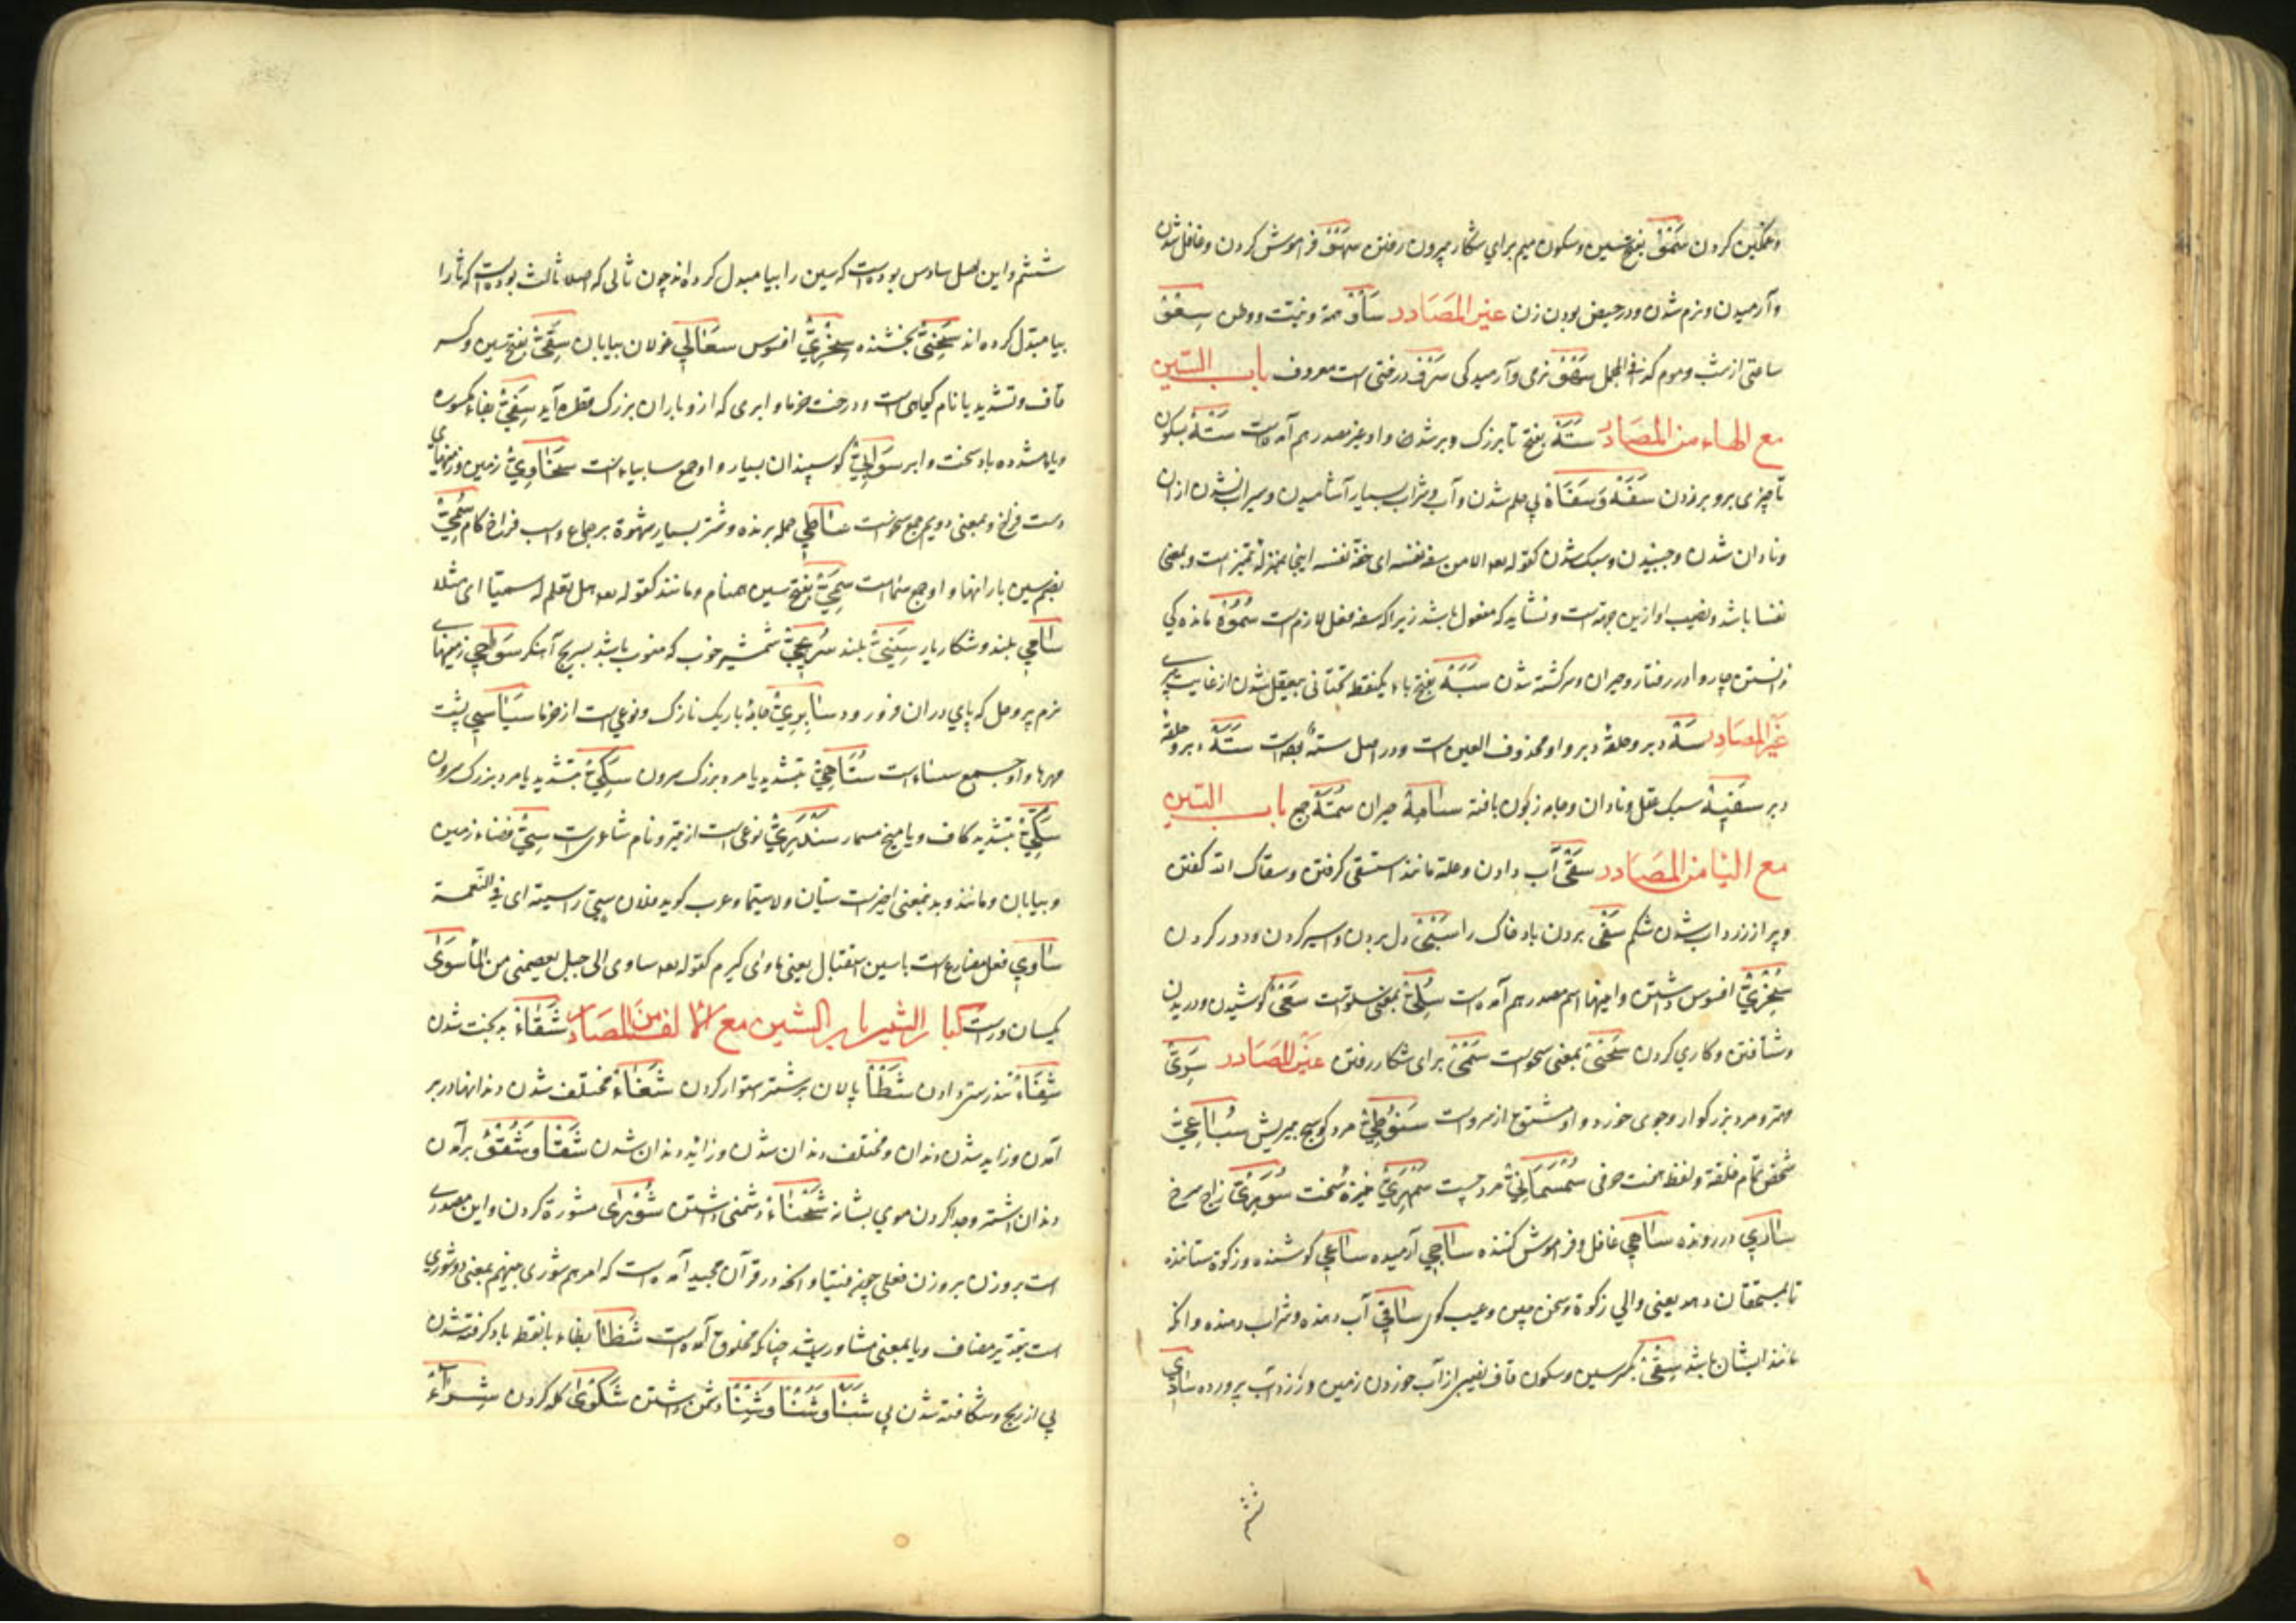 وغمگین کردن سَمْو بفتح سین وسکون میم برای شکار بیرون رفتن سَهْو فراموش کردن وغافل شدن
وآرمیدن ونرم شدن ودر حیض بودن زن غیر المصادر سَأْو همة ونیت ووطن سِعْو
ساعتی از شب وموم کذا فی المجمل سَهْو نرمی وآرمیدگی سَرْو درختی است معروف باب السّین
مع الهاء من المصادر سَتَه بفتح تا بزرگ دبر شدن واو غیر مصدر هم آمده است سَتْه بسکون
تا چیزی بر دبر زدن سَفَه وسَفَاه بی حلم شدن وآب وشراب بسیار آشامیدن وسیراب نشدن ازان
ونادان شدن وجنبیدن وسبک شدن کقوله تعه الا من سفه نفسه ای خفة نفسه اینجا بمنزله تمیز است وبمعنی
نفسا باشد ونصیب او ازین جهة است ونشاید که مفعول باشد زیرا که سفه فعل لازم است سُمُوه مانده کی
ندانستن چاروا در رفتار وحیران وسرگشته شدن سَبَه بفتح باء یکنقطه تحتانی بیعقل شدن از غایت پیری
غیر المصادر سَه دبر وحلقهٔ دبر واو محذوف العین است ودر اصل سته بوده است سَتَه دبر وحلقهٔ
دبر سَفِیه سبک عقل ونادان وجامه زبون بافته سامه حیران سُمَّه جمع باب السّین
مع الیا من المصادر سَقْی آب دادن وعلة مانند استسقی گرفتن وسقاک الله گفتن
وپر از زرداب شدن شکم سَفْی بردن باد خاک را سَبْی دل بردن واسیر کردن ودور کردن
سُخْرِیّ افسوس داشتن واینها اسم مصدر هم آمده است سَعْی کوشیدن ودویدن
وشتافتن وکاری کردن سَحْی بمعنی سحو است سَمْی برای شکار رفتن غیر المصادر سَرِیّ
مهتر ومرد بزرگوار وجوی خورد واو مشتق از سرو است سَنُوطِیّ مرد کوسج بیریش سُبَاعِیّ
شخص تمام خلقة ولفظ هفت حرفی سُمْسُمَانِیّ مرد چست سَمْهَرِیّ نیزهٔ سخت زاج سرخ
ساری در رونده ساهی غافل وفراموش کننده ساجی آرمیده ساعی کوشنده وزکوة ستاننده
تا بمستحقان دهد یعنی والی زکوة وسخن چین وعیب گوی ساقی آب دهنده وشراب دهنده وآنکه
مانند ایشان باشد سِقْی بکسر سین وسکون قاف نصیبی از آب خوردن زمین وزرداب پرورده سادی
ششم
ششم واین اصل سادس بوده است که سین را بیا مبدل کرده اند چون ثالی که اصلا ثالث بوده است که ثا را
بیا مبدل کرده اند سَخِیّ بخشنده سِخْرِیّ افسوس سَعَالِی غولان بیابان سَقِیّ بفتح سین وکسر
قاف وتشدید یا نام گیاهی است ودرخت خرما وابری که ازو باران بزرگ قطره آید سَفِیّ بفاء مکسوره
ویا باد سخت وابر سَوَابِی گوسپندان بسیار واو جمع سابیاء است سَخَاوِیّ زمین وزمینهای
دست فراخ وبمعنی دویم جمع سخواست ساطی حمله برنده وشتر بسیار شهوة بر جماع واسب فراخ کام سُمِیّ
بضم سین بارانها واو جمع سما است سَمِیّ بفتح سین همنام ومانند کقوله تعه هل تعلم له سمیّا ای مثلا
سامی بلند وشکاریار سَنِیّ بلند سُرَیْجِیّ شمشیر خوب که منسوب باشد بسریج آهنگر سَوَاخِی زمینهای
نرم پر وحل که پای دران فرو رود سَابِرِیّ جامهٔ باریک نازک ونوعی است از خرما سَیَاسِی پشت
مهرها واو جمع سیساء است سُتَاهِیّ بتشدید یا مرد بزرگ سرون سَتَهِیّ بتشدید یا مرد بزرگ سرون
سَکِّیّ بتشدید کاف ویا میخ مسمار سَنْدَرِیّ نوعی است از تیر ونام شاعری است سِیّ فضاء زمین
وبیابان ومانند وبدینمعنی اخیر است سیّان ولا سیّما وعرب گوید فلان سِیّ راسه ای فی النعمة
سآوی فعل مضارع است با سین استقبال یعنی ماوای گیرم کقوله تعه ساوی الی جبل یعصمنی من الماء سَوِیّ
یکسان وراست کتاب الشین باب الشین مع الالف من المصادر شَقَاء بدبخت شدن
شِفَاء تندرستی دادن شَطْأ پالان بر شتر استوار کردن شَغَا مختلف شدن دندانها در بر
آمدن وزاید شدن دندان ومختلف دندان شدن وزاید دندان شدن شَقْأ وشُقُوء بر آمدن
دندان اشتر وجدا کردن موی بشانه شَحْنَاء دشمنی داشتن شُوْرَی مشورة کردن واین مصدر
است بر وزن بر وزن فعلی چون فتیا وآنکه در قرآن مجید آمده است که امرهم شوری بینهم بمعنی ذو شوری
است بتقدیر مضاف ویا بمعنی مشاور باشد چنانکه مخلوق آمده است شَظَا بظاء با نقطه باد گرفته شدن
پی از رنج وشکافته شدن پی شَنْأ وشُنْأ وشِنْأ دشمن داشتن شَکْوَی گله کردن شِرَاء